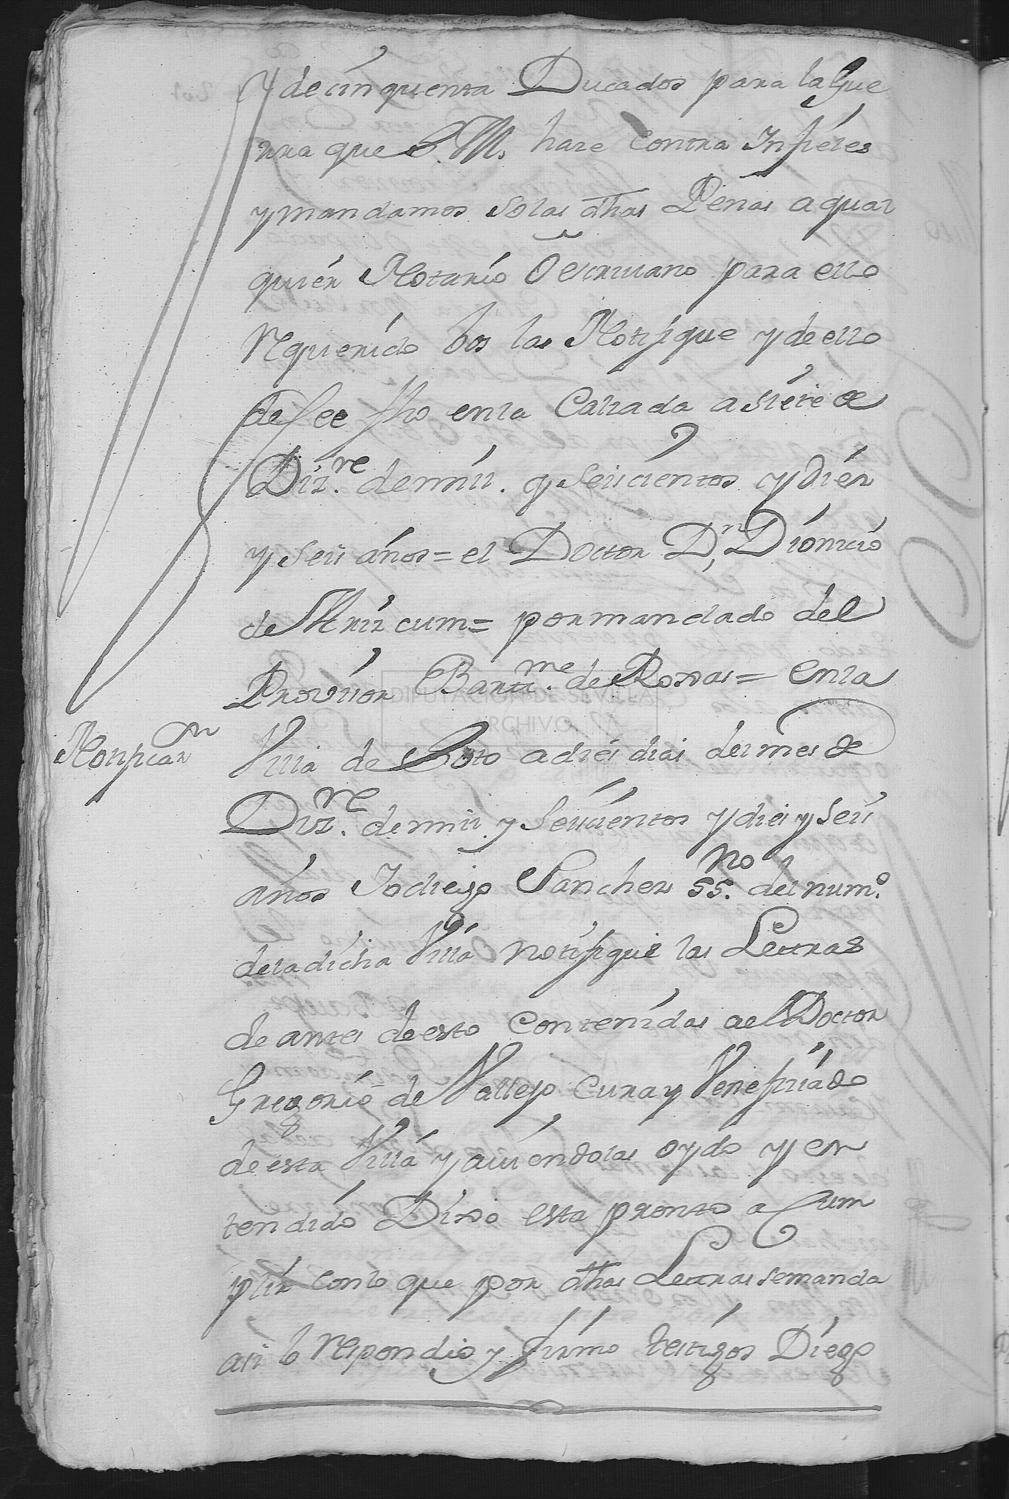 y de cinquenta Ducados para la Gue
rra que S. M. hace contra Infieles
y mandamos so las dhas Penas a qual
quier Notario o escriuano para ello
requerido bos las Notifique y de ello
de fee fho en la Calzada a siete de
Diz.re de mil y seiscientos y diez
y seis años = el Doctor D.n Dionicio
de = por mandado del
Provisor Bartt.me de Roxas = en la
Notificaz.n
Villa de Soto a dies dias del mes de
Diz.re de mil y seiscientos y dies y seis
años Yo diego Sanchez ss.no del num.o
de la dicha Villa notifique las Letras
de antes de esto contenidas a el Doctor
Gregorio de Vallejo Cura y Venefisiado
de esta Villa y auiendolas oydo y en
tendido Dixo esta pronto a Cum
plir con lo que por dhas Letras se manda
asi lo respondio y firmo testigos Diego
DIPUTACIÓN DE SEVILLA
ARCHIVO